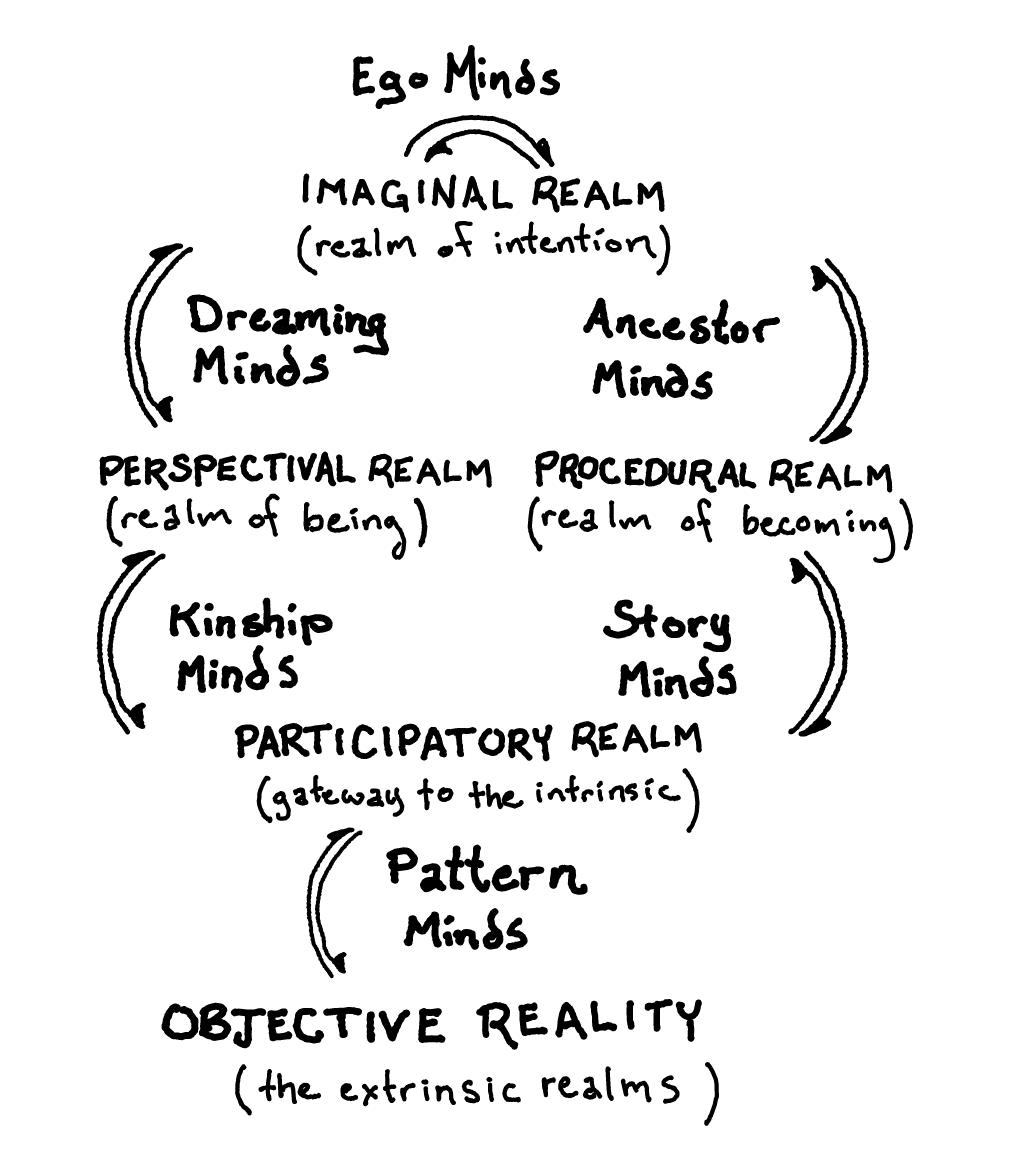 Ego Minds
IMAGINAL REALM
(realm of intention)
Dreaming
Minds
Ancestor
Minds
PERSPECTIVAL REALM
(realm of being)
PROCEDURAL REALM
(realm of becoming)
Kinship
Minds
Story
Minds
PARTICIPATORY REALM
(gateway to the intrinsic)
Pattern
Minds
OBJECTIVE REALITY
(the extrinsic realms)